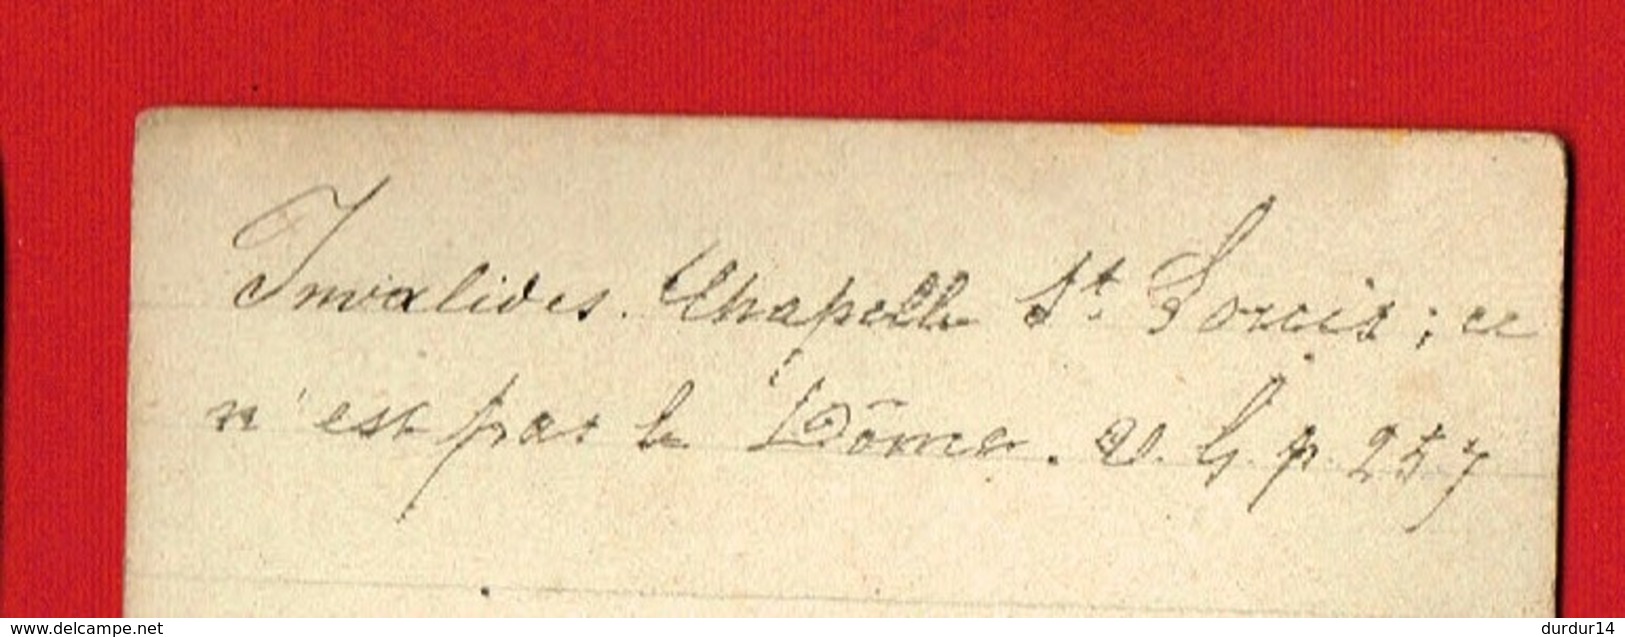 Invalides. Chapelle St Louis ; ce
n'est pas le Dôme. v. G. p. 257
www.delcampe.net
durdur14